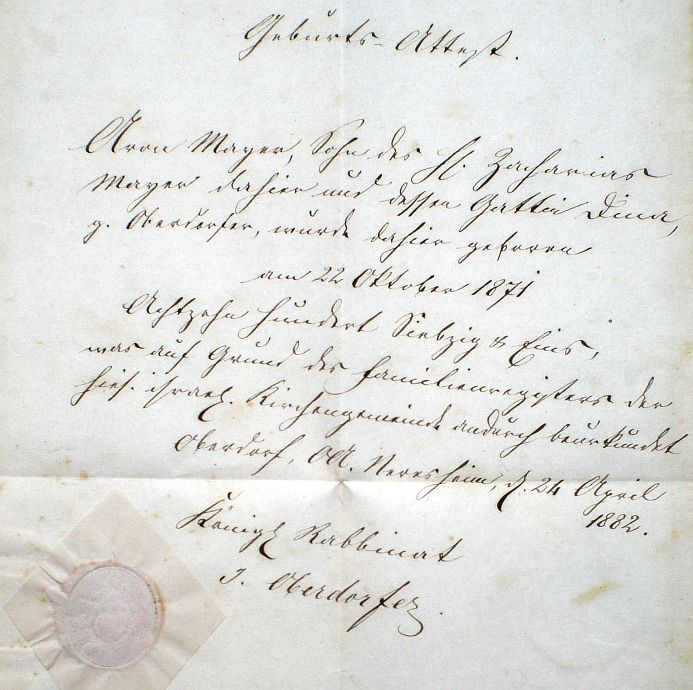 Geburts-Attest.
Aron Mayer, Sohn des H. Zacharias
Mayer dahier und dessen Gattin Dina,
g. Oberdorfer, wurde dahier geboren
am 22 Oktober 1871
Achtzehn hundert Siebzig & Eins,
was auf Grund des Familienregisters der
hies. israel. Kirchengemeinde andurch beurkundet
Oberdorf, OA. Neresheim, d. 24 April
1882.
Königl Rabbinat
J. Oberdorfer